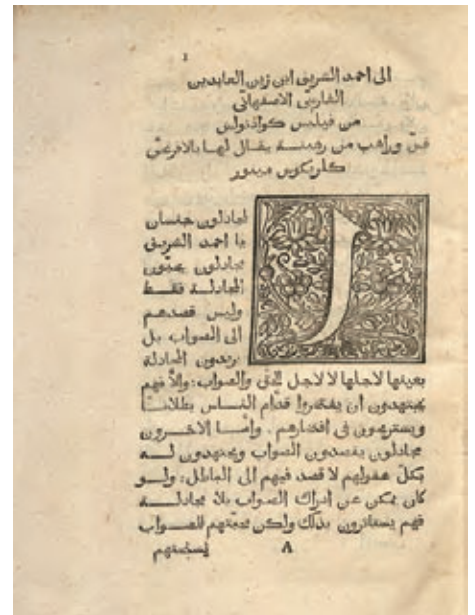 1
الى احمد الشريف ابن زين العابدين
الفارسي الاصفهاني
من فيلبس كوادنولس
قسّ وراهب من رهبنة يقال لها بالافرنجي
كلاريكوس مينور
لمجادلون جنسان
يا احمد الشريف
مجادلون يحبّون
المجادلة فقط
وليس قصدهم
الى الصواب بل
يريدون المجادلة
بعينها لاجلها لا لاجل الحق والصواب: والاّ فهم
يجتهدون أن يفتخروا قدّام الناس بطلانًا
ويستريحون في افتخارهم. وامّا الاخرون
مجادلون يقصدون الصواب ويجتهدون له
بكلّ عقولهم لا قصد فيهم الى الباطل: ولو
كان يمكن عن ادراك الصواب بلا مجادلة
فهم يستاثرون بذلك ولكن محبّتهم للصواب
A